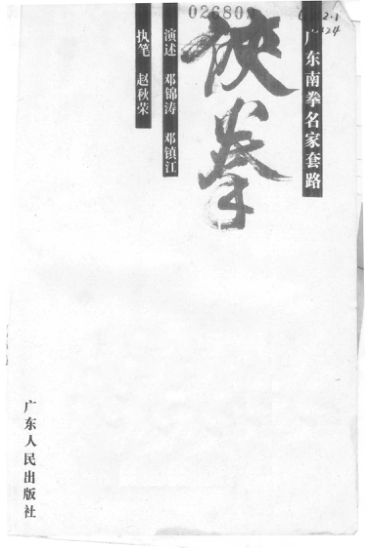 广东南拳名家套路
侠拳
演述 邓锦涛 邓镇江
执笔 赵秋荣
广东人民出版社